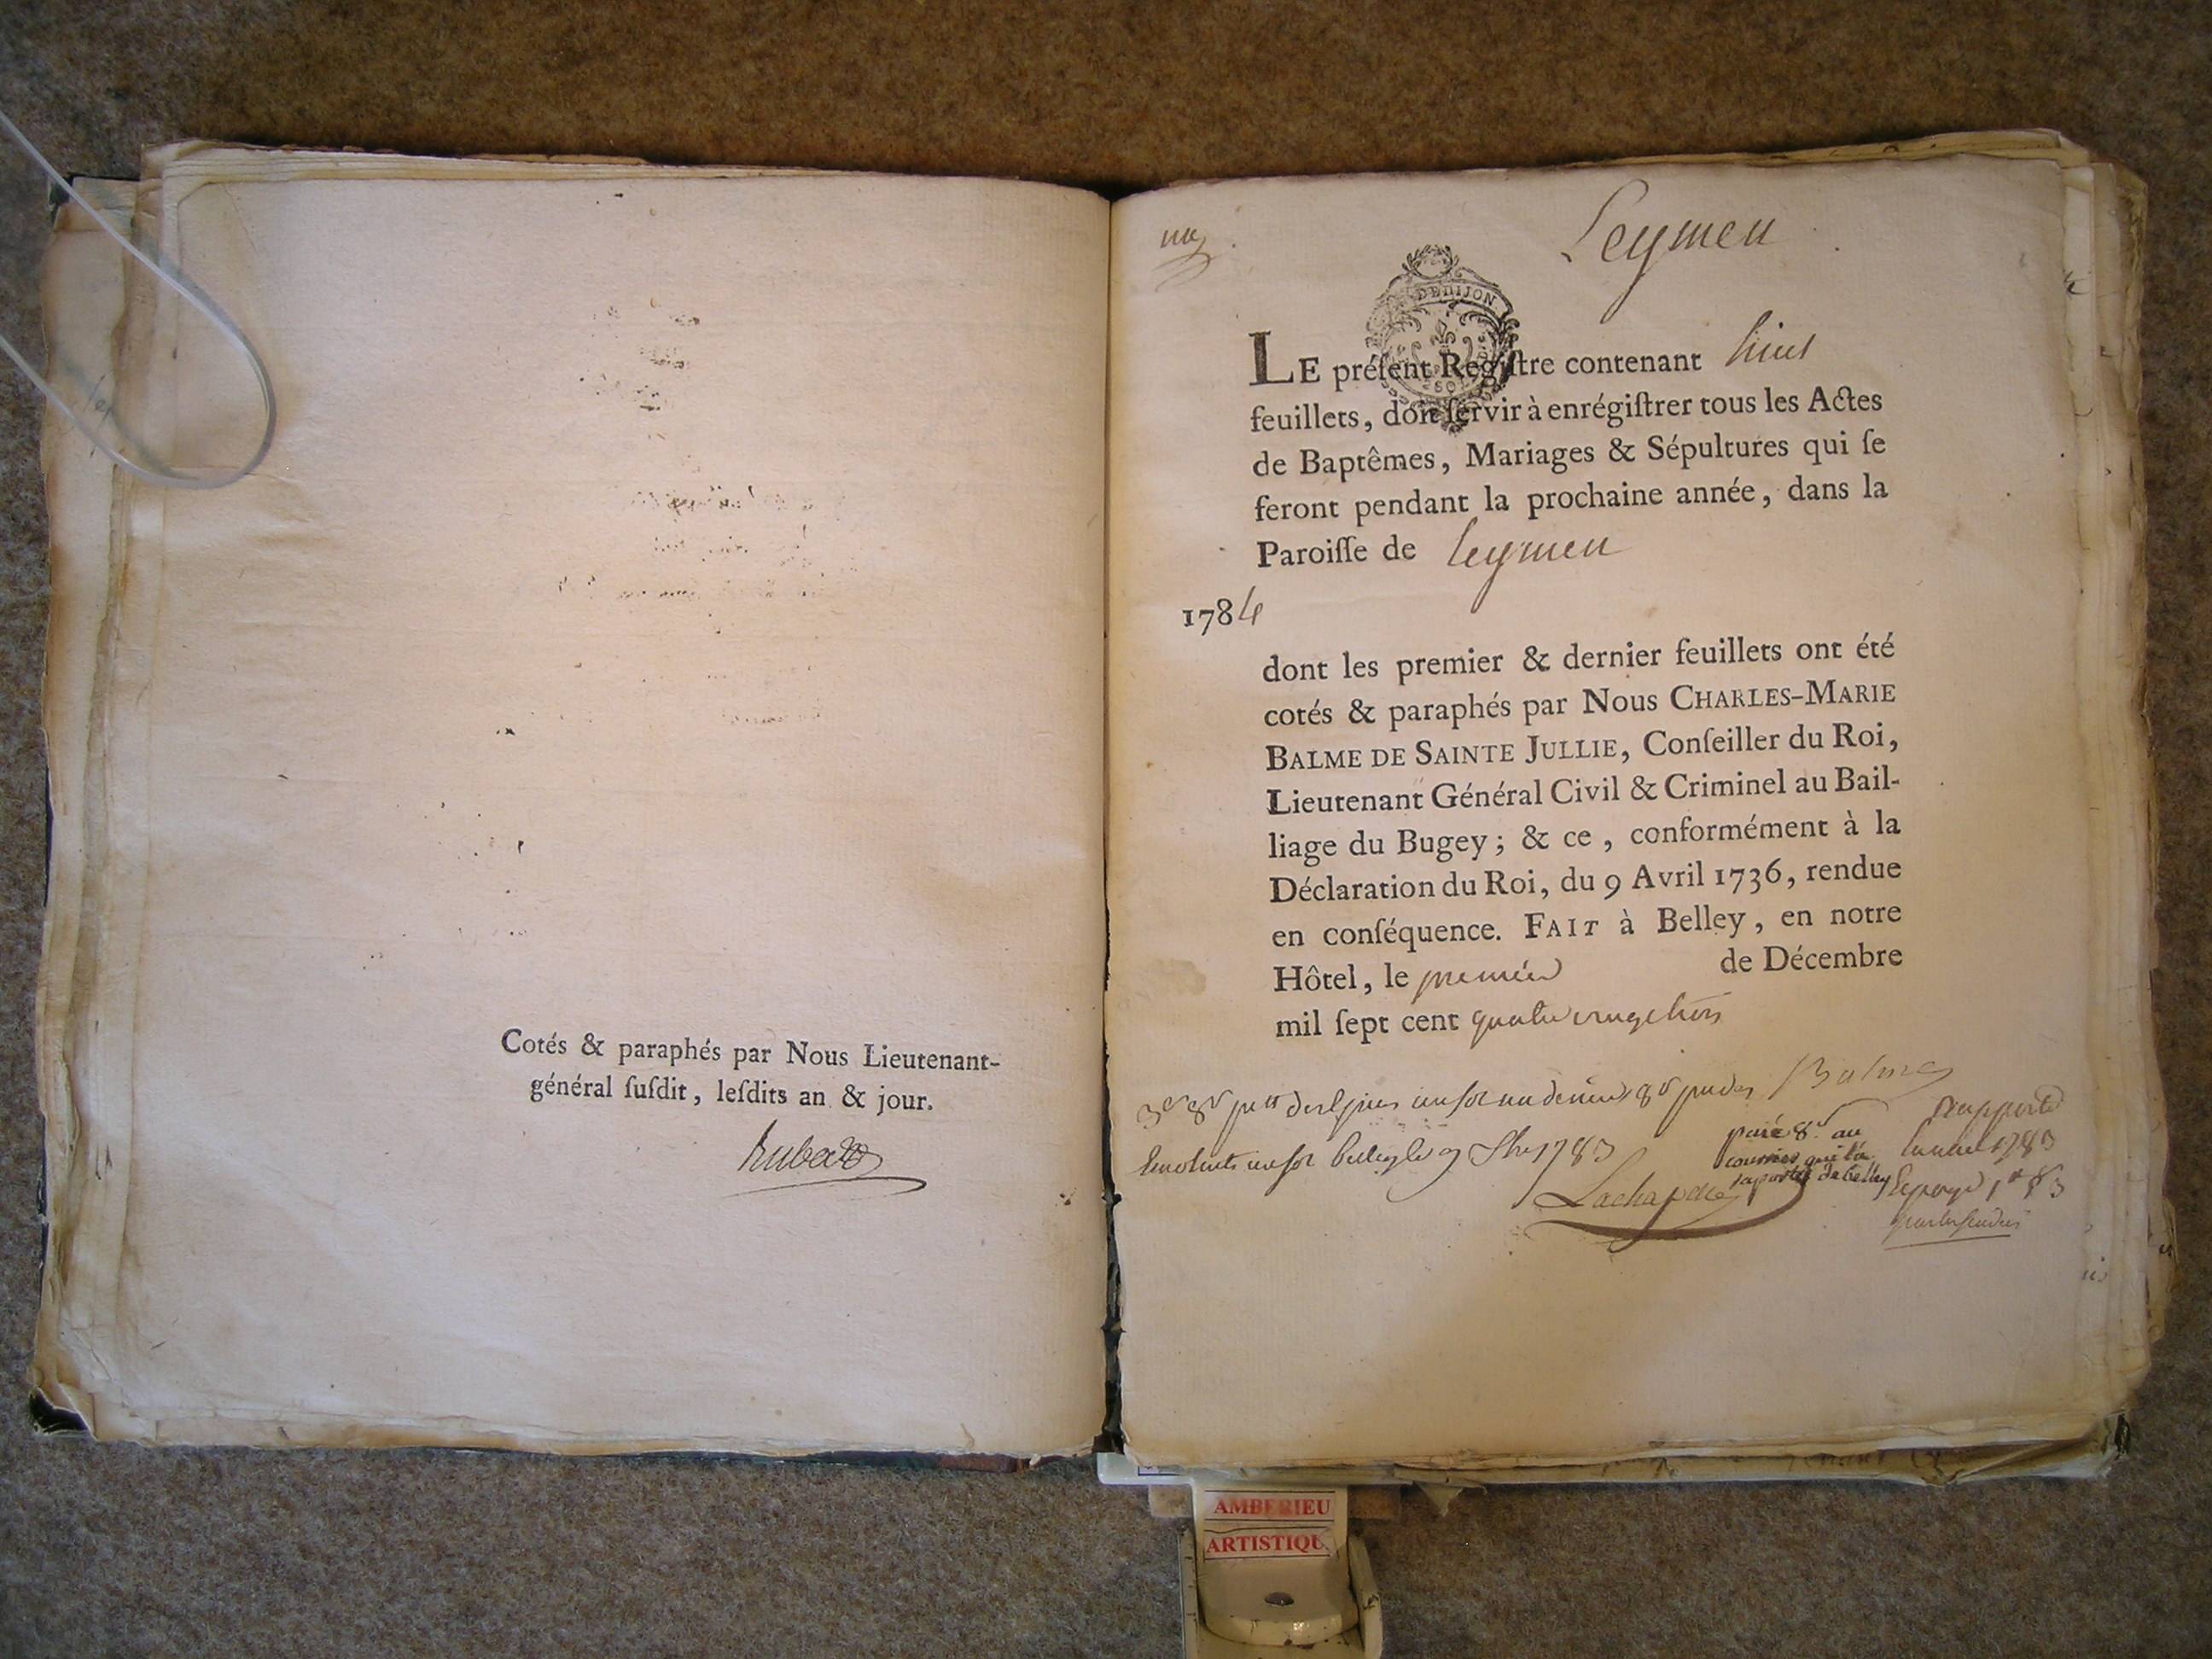 Cotés & paraphés par Nous Lieutenant-
général ſuſdit, leſdits an & jour.
Leymen
DE DIJON
LE préſent Regiſtre contenant huit
feuillets, doit ſervir à enrégiſtrer tous les Actes
de Baptêmes, Mariages & Sépultures qui ſe
feront pendant la prochaine année, dans la
Paroiſſe de Leymen
1784
dont les premier & dernier feuillets ont été
cotés & paraphés par Nous CHARLES-MARIE
BALME DE SAINTE JULLIE, Conſeiller du Roi,
Lieutenant Général Civil & Criminel au Bail-
liage du Bugey; & ce, conformément à la
Déclaration du Roi, du 9 Avril 1736, rendue
en conſéquence. FAIT à Belley, en notre
Hôtel, le premier de Décembre
mil ſept cent quatre vingt trois
Balme
1783
Lachapelle
paié 8ˢ au
courrier qui l'a
aporté de belley
AMBERIEU
ARTISTIQU